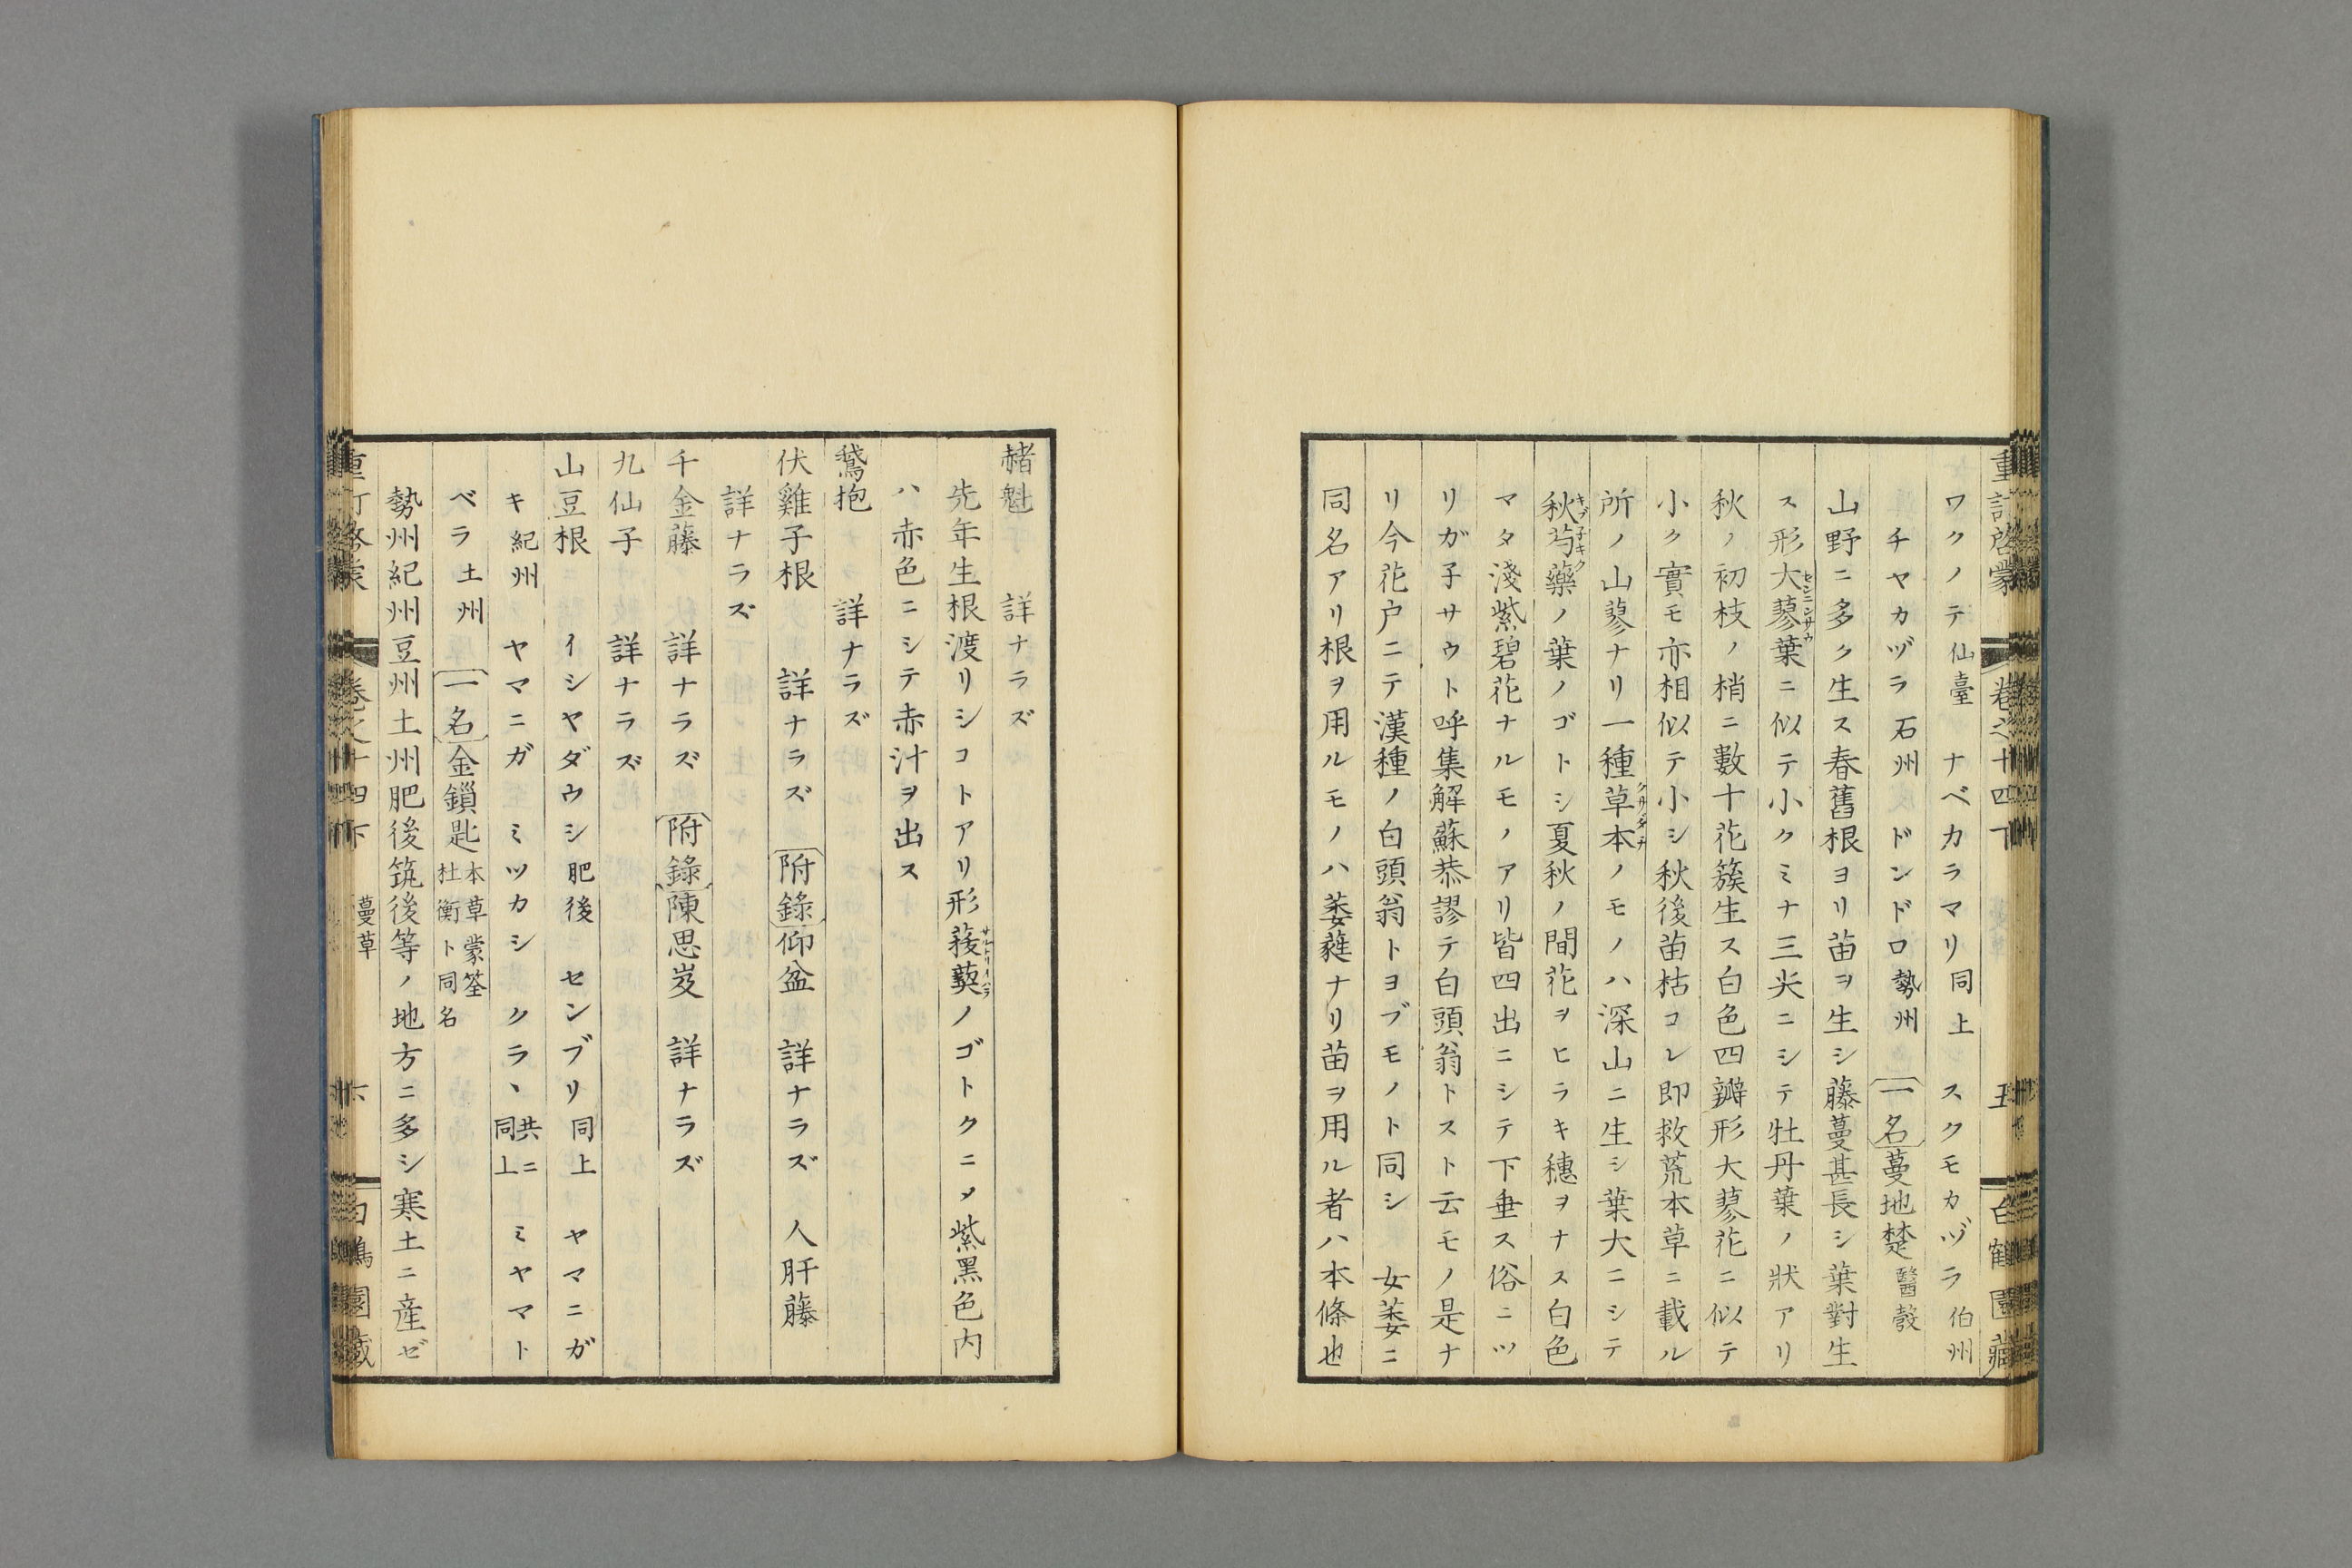 重訂啓蒙 卷之十四下 五 白鶴園藏
ワクノテ仙臺 ナベカラマリ同上 スクモカヅラ伯州
チヤカヅラ石州 ドンドロ勢州 一名 蔓地楚醫彀
山野ニ多ク生ス春舊根ヨリ苗ヲ生シ藤蔓甚長シ葉對生
ス形大蓼葉ニ似テ小クミナ三尖ニシテ牡丹葉ノ狀アリ
センニンサウ
秋ノ初枝ノ梢ニ數十花簇生ス白色四瓣形大蓼花ニ似テ
小ク實モ亦相似テ小シ秋後苗枯コレ即救荒本草ニ載ル
所ノ山蓼ナリ一種草本ノモノハ深山ニ生シ葉大ニシテ
クサボタン
秋芍藥ノ葉ノゴトシ夏秋ノ間花ヲヒラキ穗ヲナス白色
マタ淺紫碧花ナルモノアリ皆四出ニシテ下垂ス俗ニツ
リガ子サウト呼集解蘇恭謬テ白頭翁トスト云モノ是ナ
リ今花戸ニテ漢種ノ白頭翁トヨブモノト同シ 女萎ニ
同名アリ根ヲ用ルモノハ萎蕤ナリ苗ヲ用ル者ハ本條也
赭魁 詳ナラズ
先年生根渡リシコトアリ形菝葜ノゴトクニメ紫黑色内
サルトリイバラ
ハ赤色ニシテ赤汁ヲ出ス
鵞抱 詳ナラズ
伏雞子根 詳ナラズ 附錄 仰盆 詳ナラズ 人肝藤
詳ナラズ
千金藤 詳ナラズ 附錄 陳思岌 詳ナラズ
九仙子 詳ナラズ
山豆根 イシヤダウシ肥後 センブリ同上 ヤマニガ
キ紀州 ヤマニガ ミツカシ クラヽ共ニ同上 ミヤマト
ベラ土州 一名 金鎖匙本草蒙筌杜衡ト同名
勢州紀州豆州土州肥後筑後等ノ地方ニ多シ寒土ニ産ゼ
蔓草 六